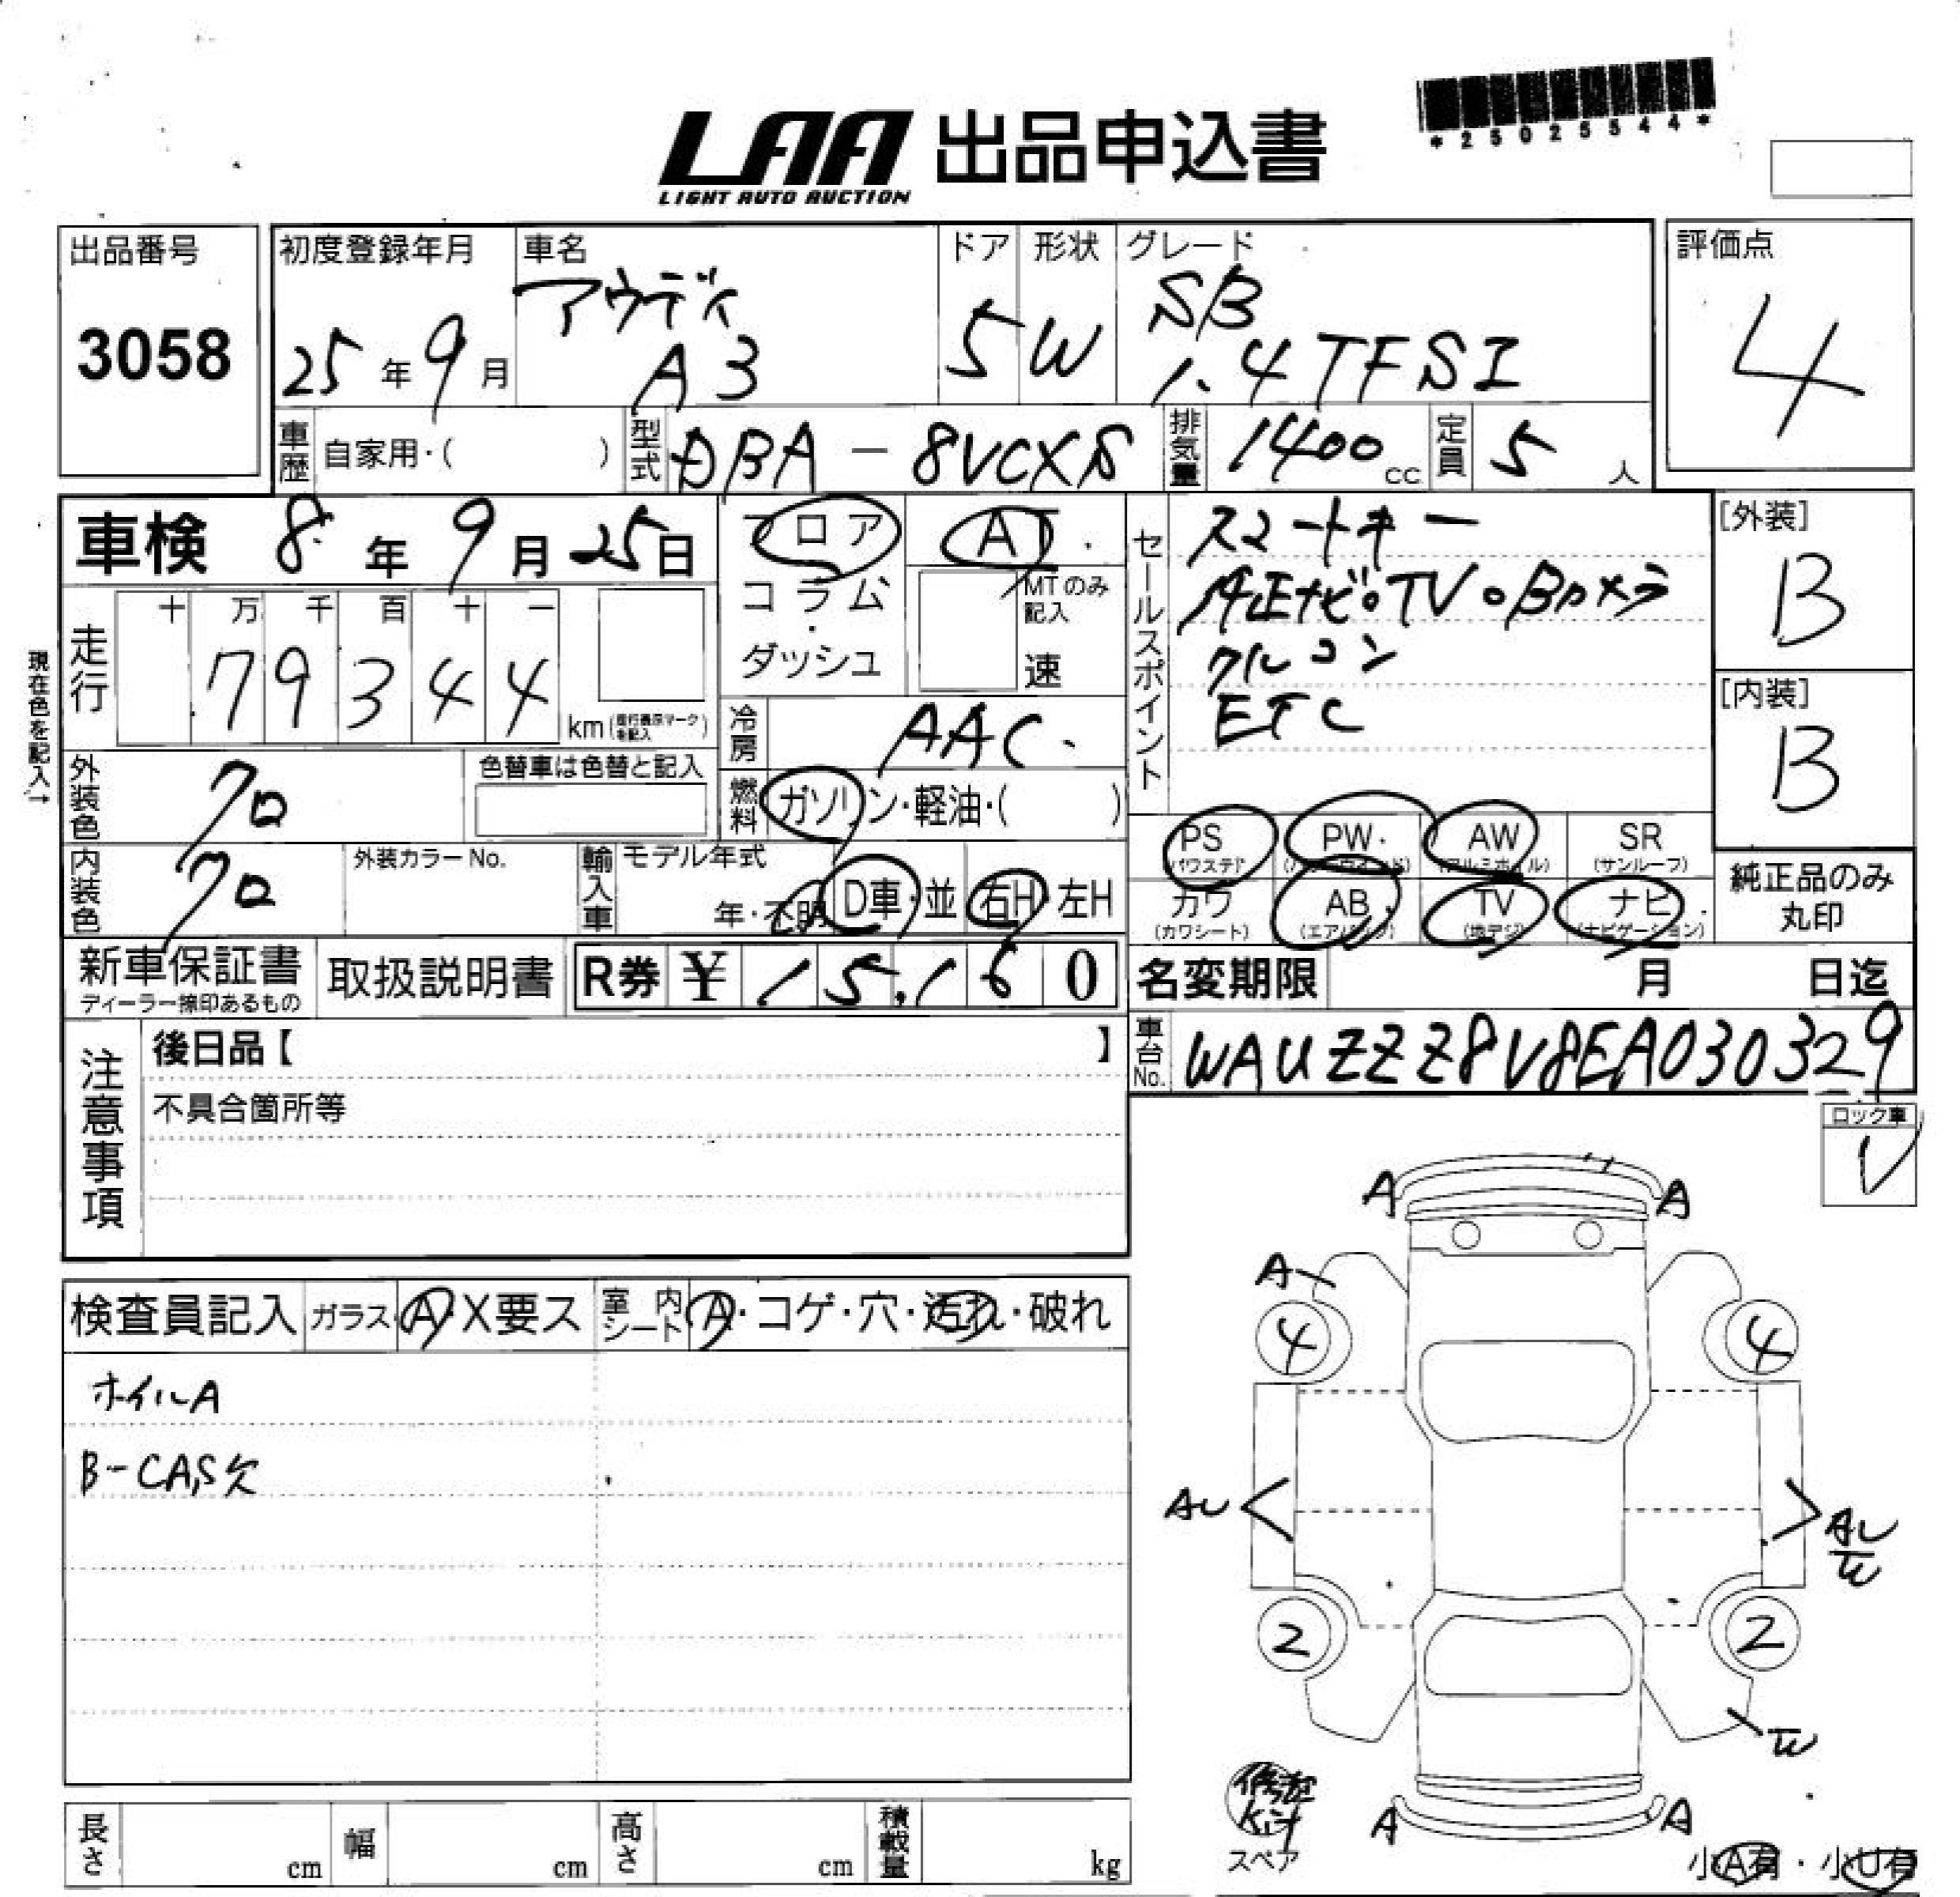 LAA 出品申込書
LIGHT AUTO AUCTION
*25025544*
出品番号
3058
初度登録年月
25年9月
車名
アウディ
A3
ドア
5
形状
W
グレード
SB
1.4TFSI
評価点
4
車歴 自家用・( )
型式 DBA-8VCXS
排気量 1400cc
定員 5人
車検 8年9月25日
フロア
コラム
ダッシュ
AT
MTのみ記入
速
セールスポイント
スマートキー
純正ナビ・TV・Bカメラ
クルコン
ETC
[外装]
B
[内装]
B
現在色を記入→
走行
十 万 千 百 十 一
79344
km(走行表示マークを記入)
冷房 AAC
燃料 ガソリン・軽油・( )
外装色 クロ
色替車は色替と記入
内装色 クロ
外装カラーNo.
輸入車 モデル年式
年・不明
D車・並
右H・左H
PS (パワステ)
PW (パワーウィンド)
AW (アルミホイル)
SR (サンルーフ)
カワ (カワシート)
AB (エアバッグ)
TV (地デジ)
ナビ (ナビゲーション)
純正品のみ丸印
新車保証書
ディーラー捺印あるもの
取扱説明書
R券 ¥15,160
名変期限 月 日迄
車台No. WAUZZZ8V8EA030329
注意事項
後日品【 】
不具合箇所等
ロック車
レ
検査員記入
ガラス A・X要ス
室内シート A・コゲ・穴・汚れ・破れ
ホイルA
B-CAS欠
A A
A
4 4
AU AU
W
2 2
W
修理Kit
スペア
A A
小A有・小U有
長さ cm
幅 cm
高さ cm
積載量 kg